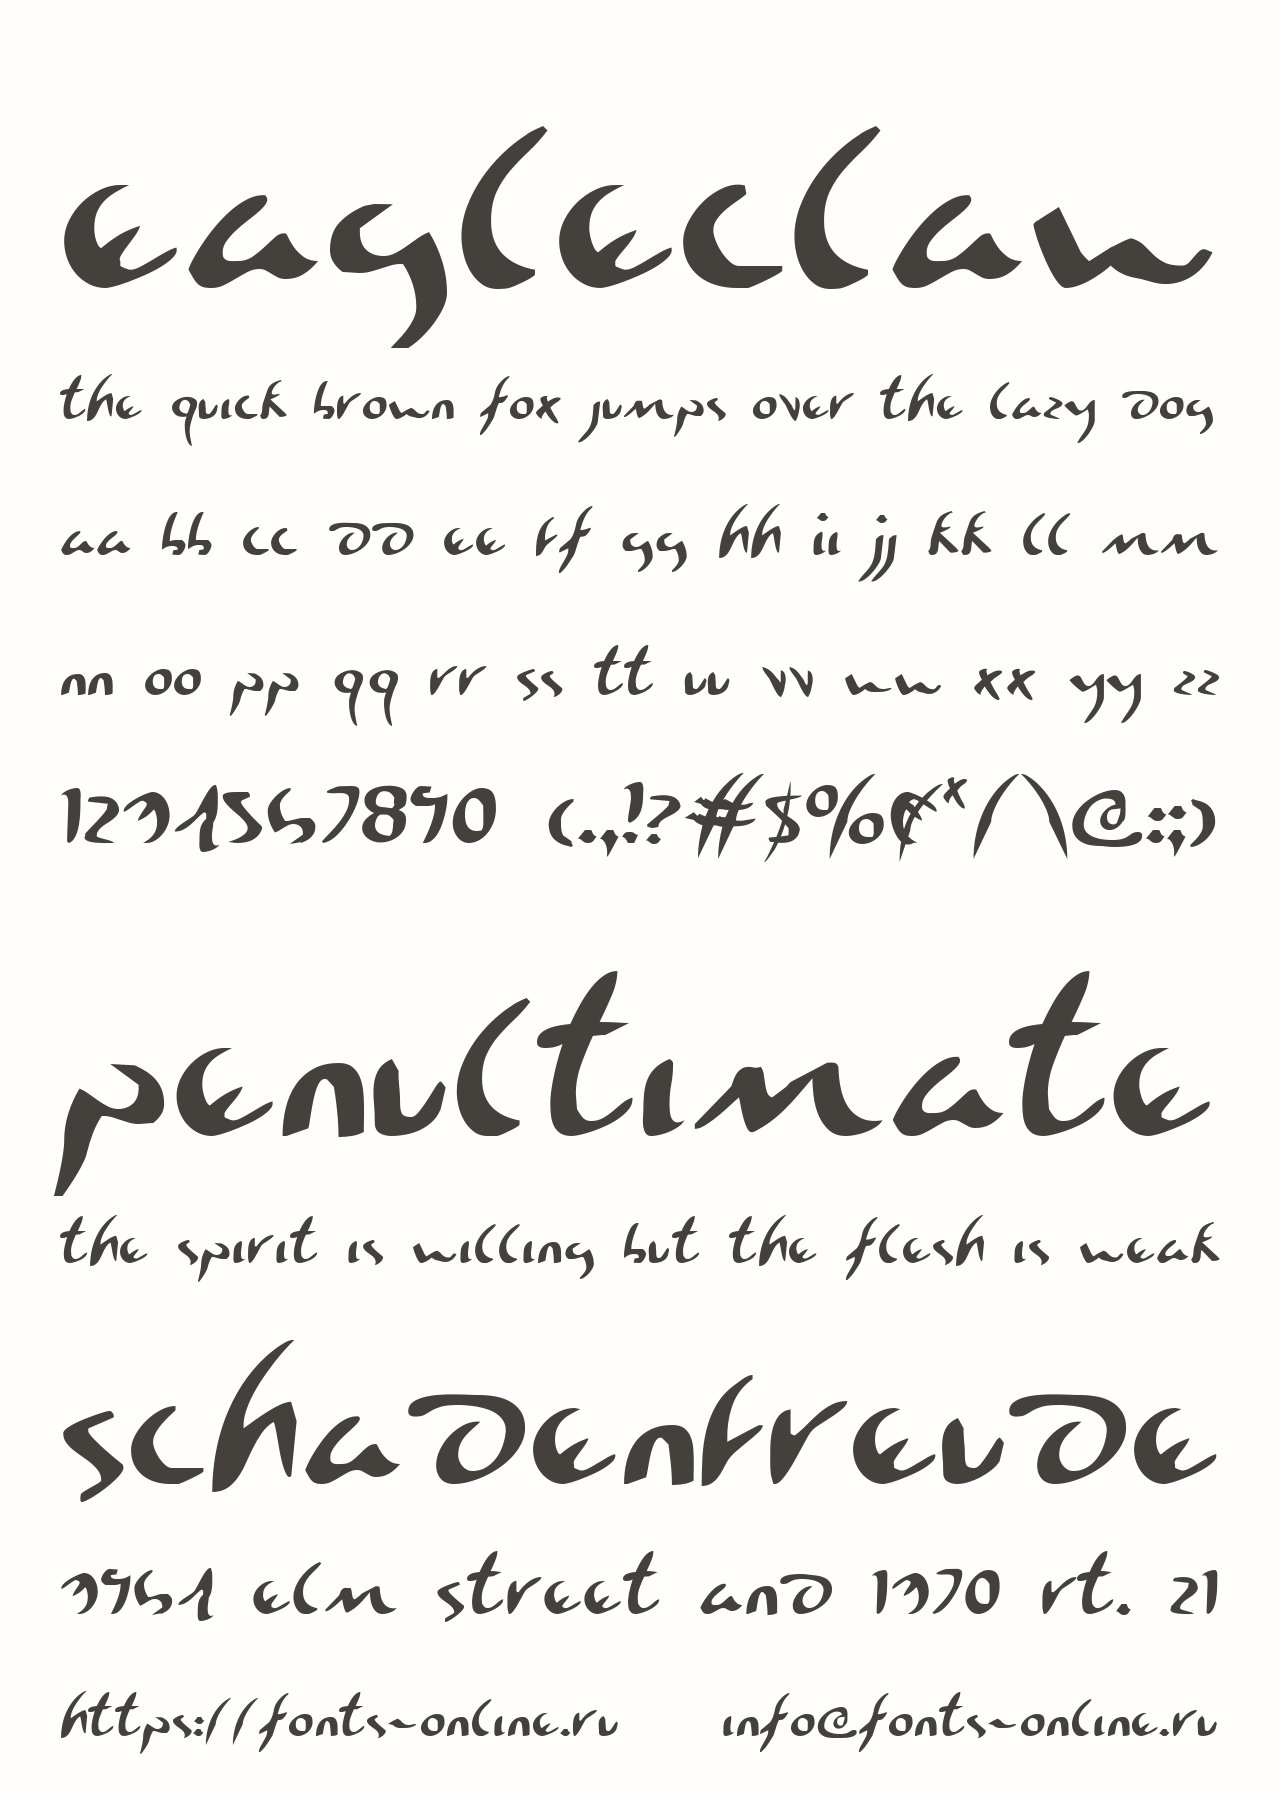 eagleclaw
the quick brown fox jumps over the lazy dog
aa bb cc dd ee ff gg hh ii jj kk ll mm
nn oo pp qq rr ss tt uu vv ww xx yy zz
1234567890 (.,!?#$%¢*/\@:;)
penultimate
the spirit is willing but the flesh is weak
schadenfreude
3964 elm street and 1370 rt. 21
https://fonts-online.ru info@fonts-online.ru